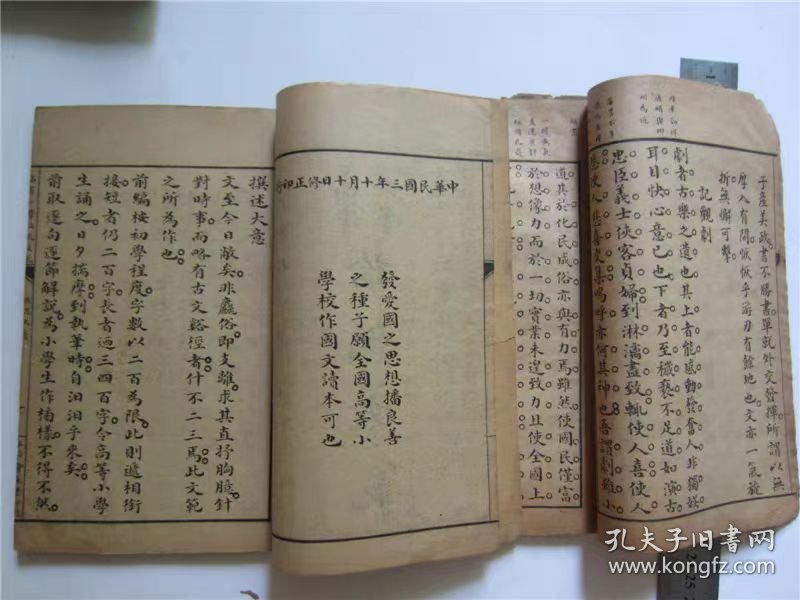 子產美政書不勝書單就外交發揮所謂以無
厚入有間恢恢乎游刃有餘地也文亦一氣旋
折無懈可擊
記觀劇
劇者古樂之遺也其上者能感動發奮人非獨娛
耳目快心意已也下者乃至穢褻不足道如演古
忠臣義士俠客貞婦到淋漓盡致輒使人喜使人
悲使人悲喜交集嗚呼亦何其神也吾謂劇雖小
道其於化民成俗亦與有力焉雖然使國民僅富
於想像力而於一切實業未遑致力且使全國上
中華民國三年十月十日修正初
發愛國之思想播良善
之種子願全國高等小
學校作國文讀本可也
撰述大意
文至今日敝矣非麤俗即支離求其直抒胸臆針
對時事而略有古文谿徑者什不二三焉此文範
之所為作也
前編按初學程度字數以二百為限此則遞相銜
接短者仍二百字長者迺三四百字令高等小學
生誦之日夕揣摩到執筆時自汨汨乎來矣
前取逐句逐節解說為小學生作楷樣不得不然
孔夫子旧书网
www.kongfz.com